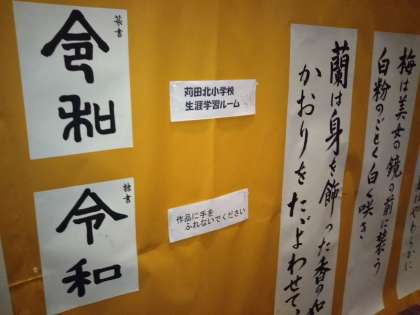 篆書
令和
隷書
令和
苅田北小学校
生涯学習ルーム
作品に手を
ふれないでください
梅は美女の鏡の前に装う
白粉のごとく白く咲き
蘭は身を飾った香の如
かおりをたゞよわせて、